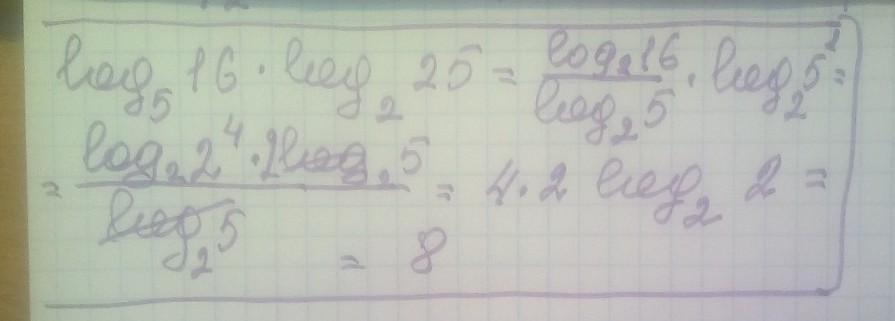 log₅ 16 · log₂ 25 = log₂16 / log₂5 · log₂5² =
= log₂2⁴ · 2log₂5 / log₂5 = 4 · 2 log₂ 2 =
= 8